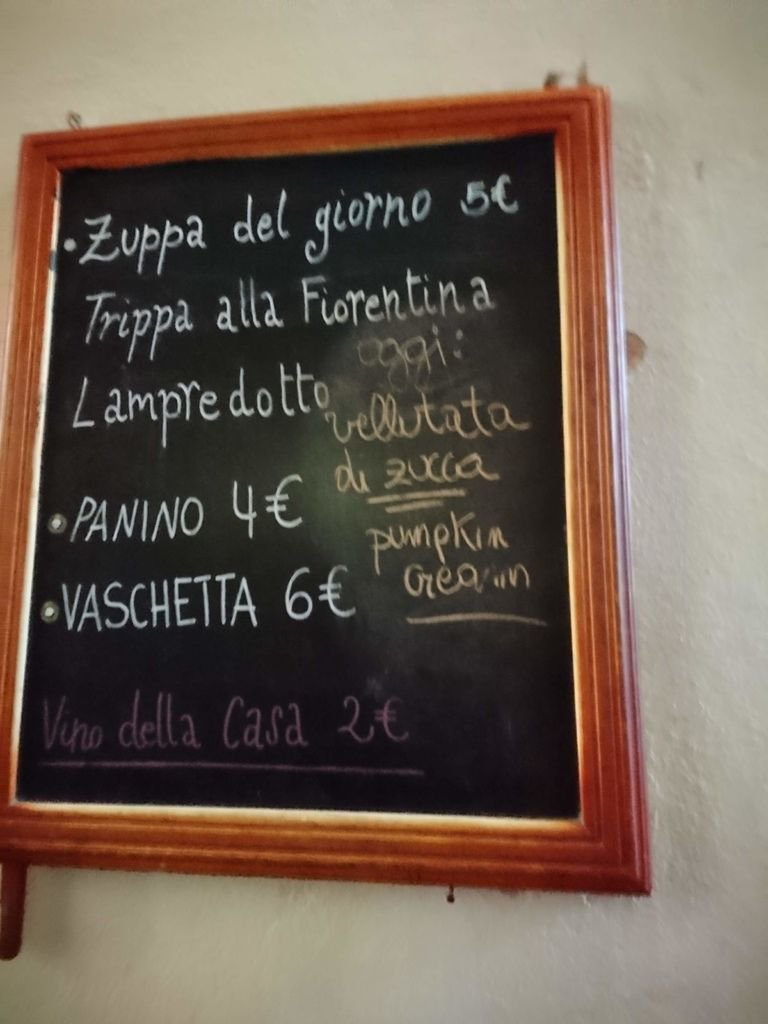 • Zuppa del giorno 5€
Trippa alla Fiorentina
Lampredotto
oggi:
vellutata
di zucca
pumpkin
cream
• PANINO 4€
• VASCHETTA 6€
Vino della Casa 2€